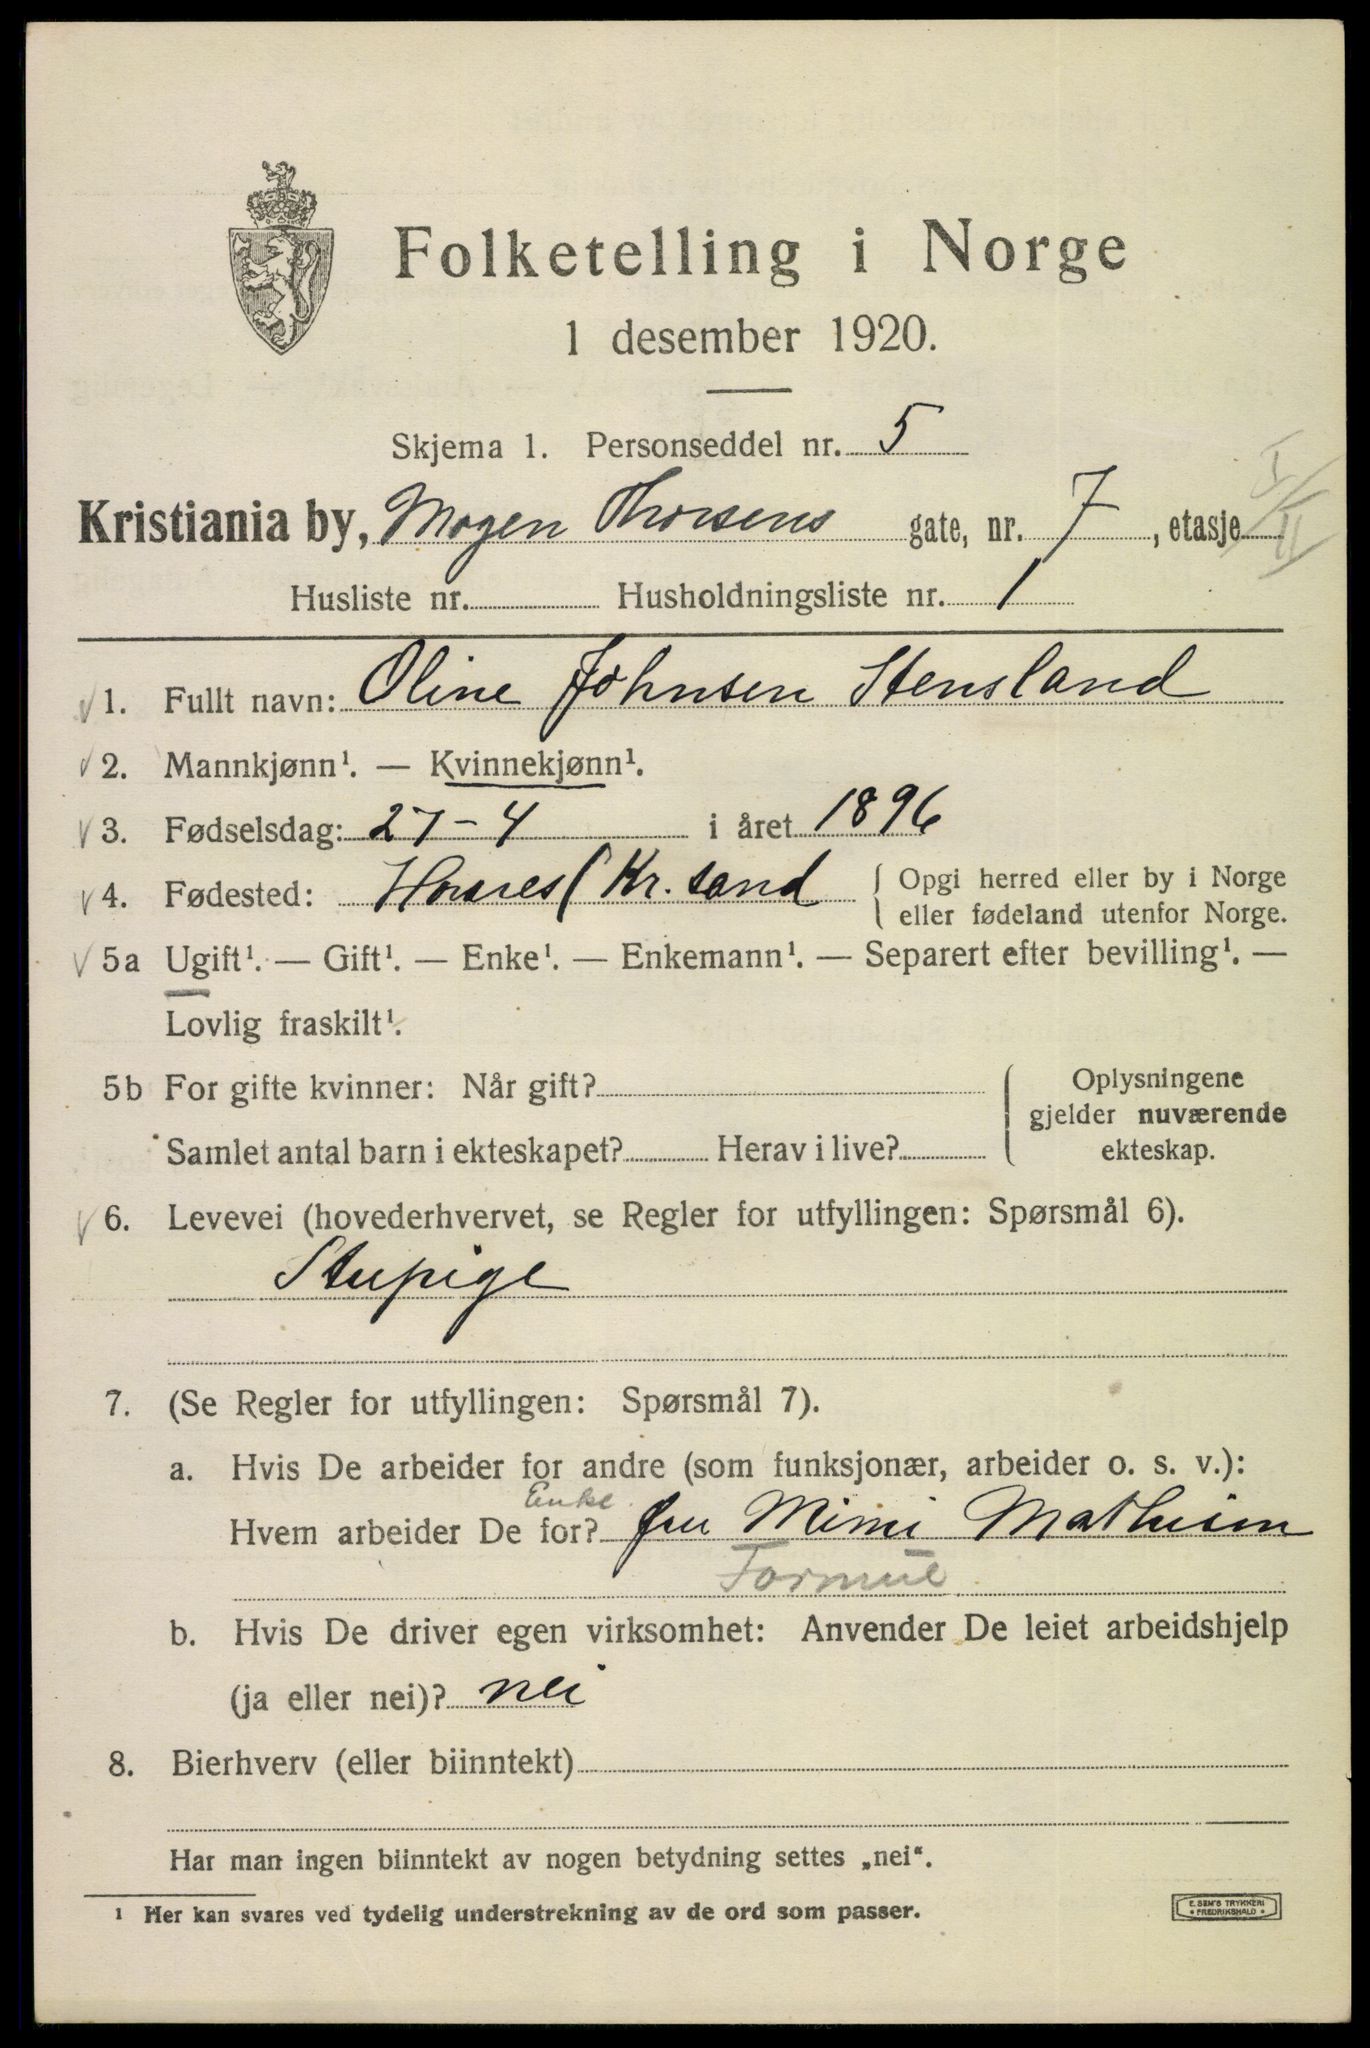 Folketelling i Norge
1 desember 1920.
Skjema 1. Personseddel nr. 5
Kristiania by, Mogen Thorsens gate, nr. 7, etasje I/II
Husliste nr. Husholdningsliste nr. 1
1. Fullt navn: Oline Johnsen Stensland
2. Mannkjønn¹. — Kvinnekjønn¹.
3. Fødselsdag: 27-4 i året 1896
4. Fødested: ( Kr. sand { Opgi herred eller by i Norge
eller fødeland utenfor Norge.
5a Ugift¹. — Gift¹. — Enke¹. — Enkemann¹. — Separert efter bevilling¹. —
Lovlig fraskilt¹.
5b For gifte kvinner: Når gift?
Samlet antal barn i ekteskapet? Herav i live?
Oplysningene
gjelder nuværende
ekteskap.
6. Levevei (hovederhvervet, se Regler for utfyllingen: Spørsmål 6).
Stupige
7. (Se Regler for utfyllingen: Spørsmål 7).
a. Hvis De arbeider for andre (som funksjonær, arbeider o. s. v.):
Enke
Hvem arbeider De for? fru Mimi Mathisen
Formue
b. Hvis De driver egen virksomhet: Anvender De leiet arbeidshjelp
(ja eller nei)? nei
8. Bierhverv (eller biinntekt)
Har man ingen biinntekt av nogen betydning settes „nei“.
¹ Her kan svares ved tydelig understrekning av de ord som passer.
E. SEM'S TRYKKERI
• FREDRIKSHALD •